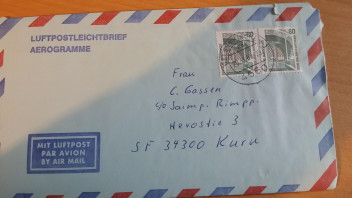 LUFTPOSTLEICHTBRIEF
AEROGRAMME
80
80
Frau
C. Gassen
c/o Saimp. Rimpp.
Havostie 3
SF 39300 Kuru
MIT LUFTPOST
PAR AVION
BY AIR MAIL